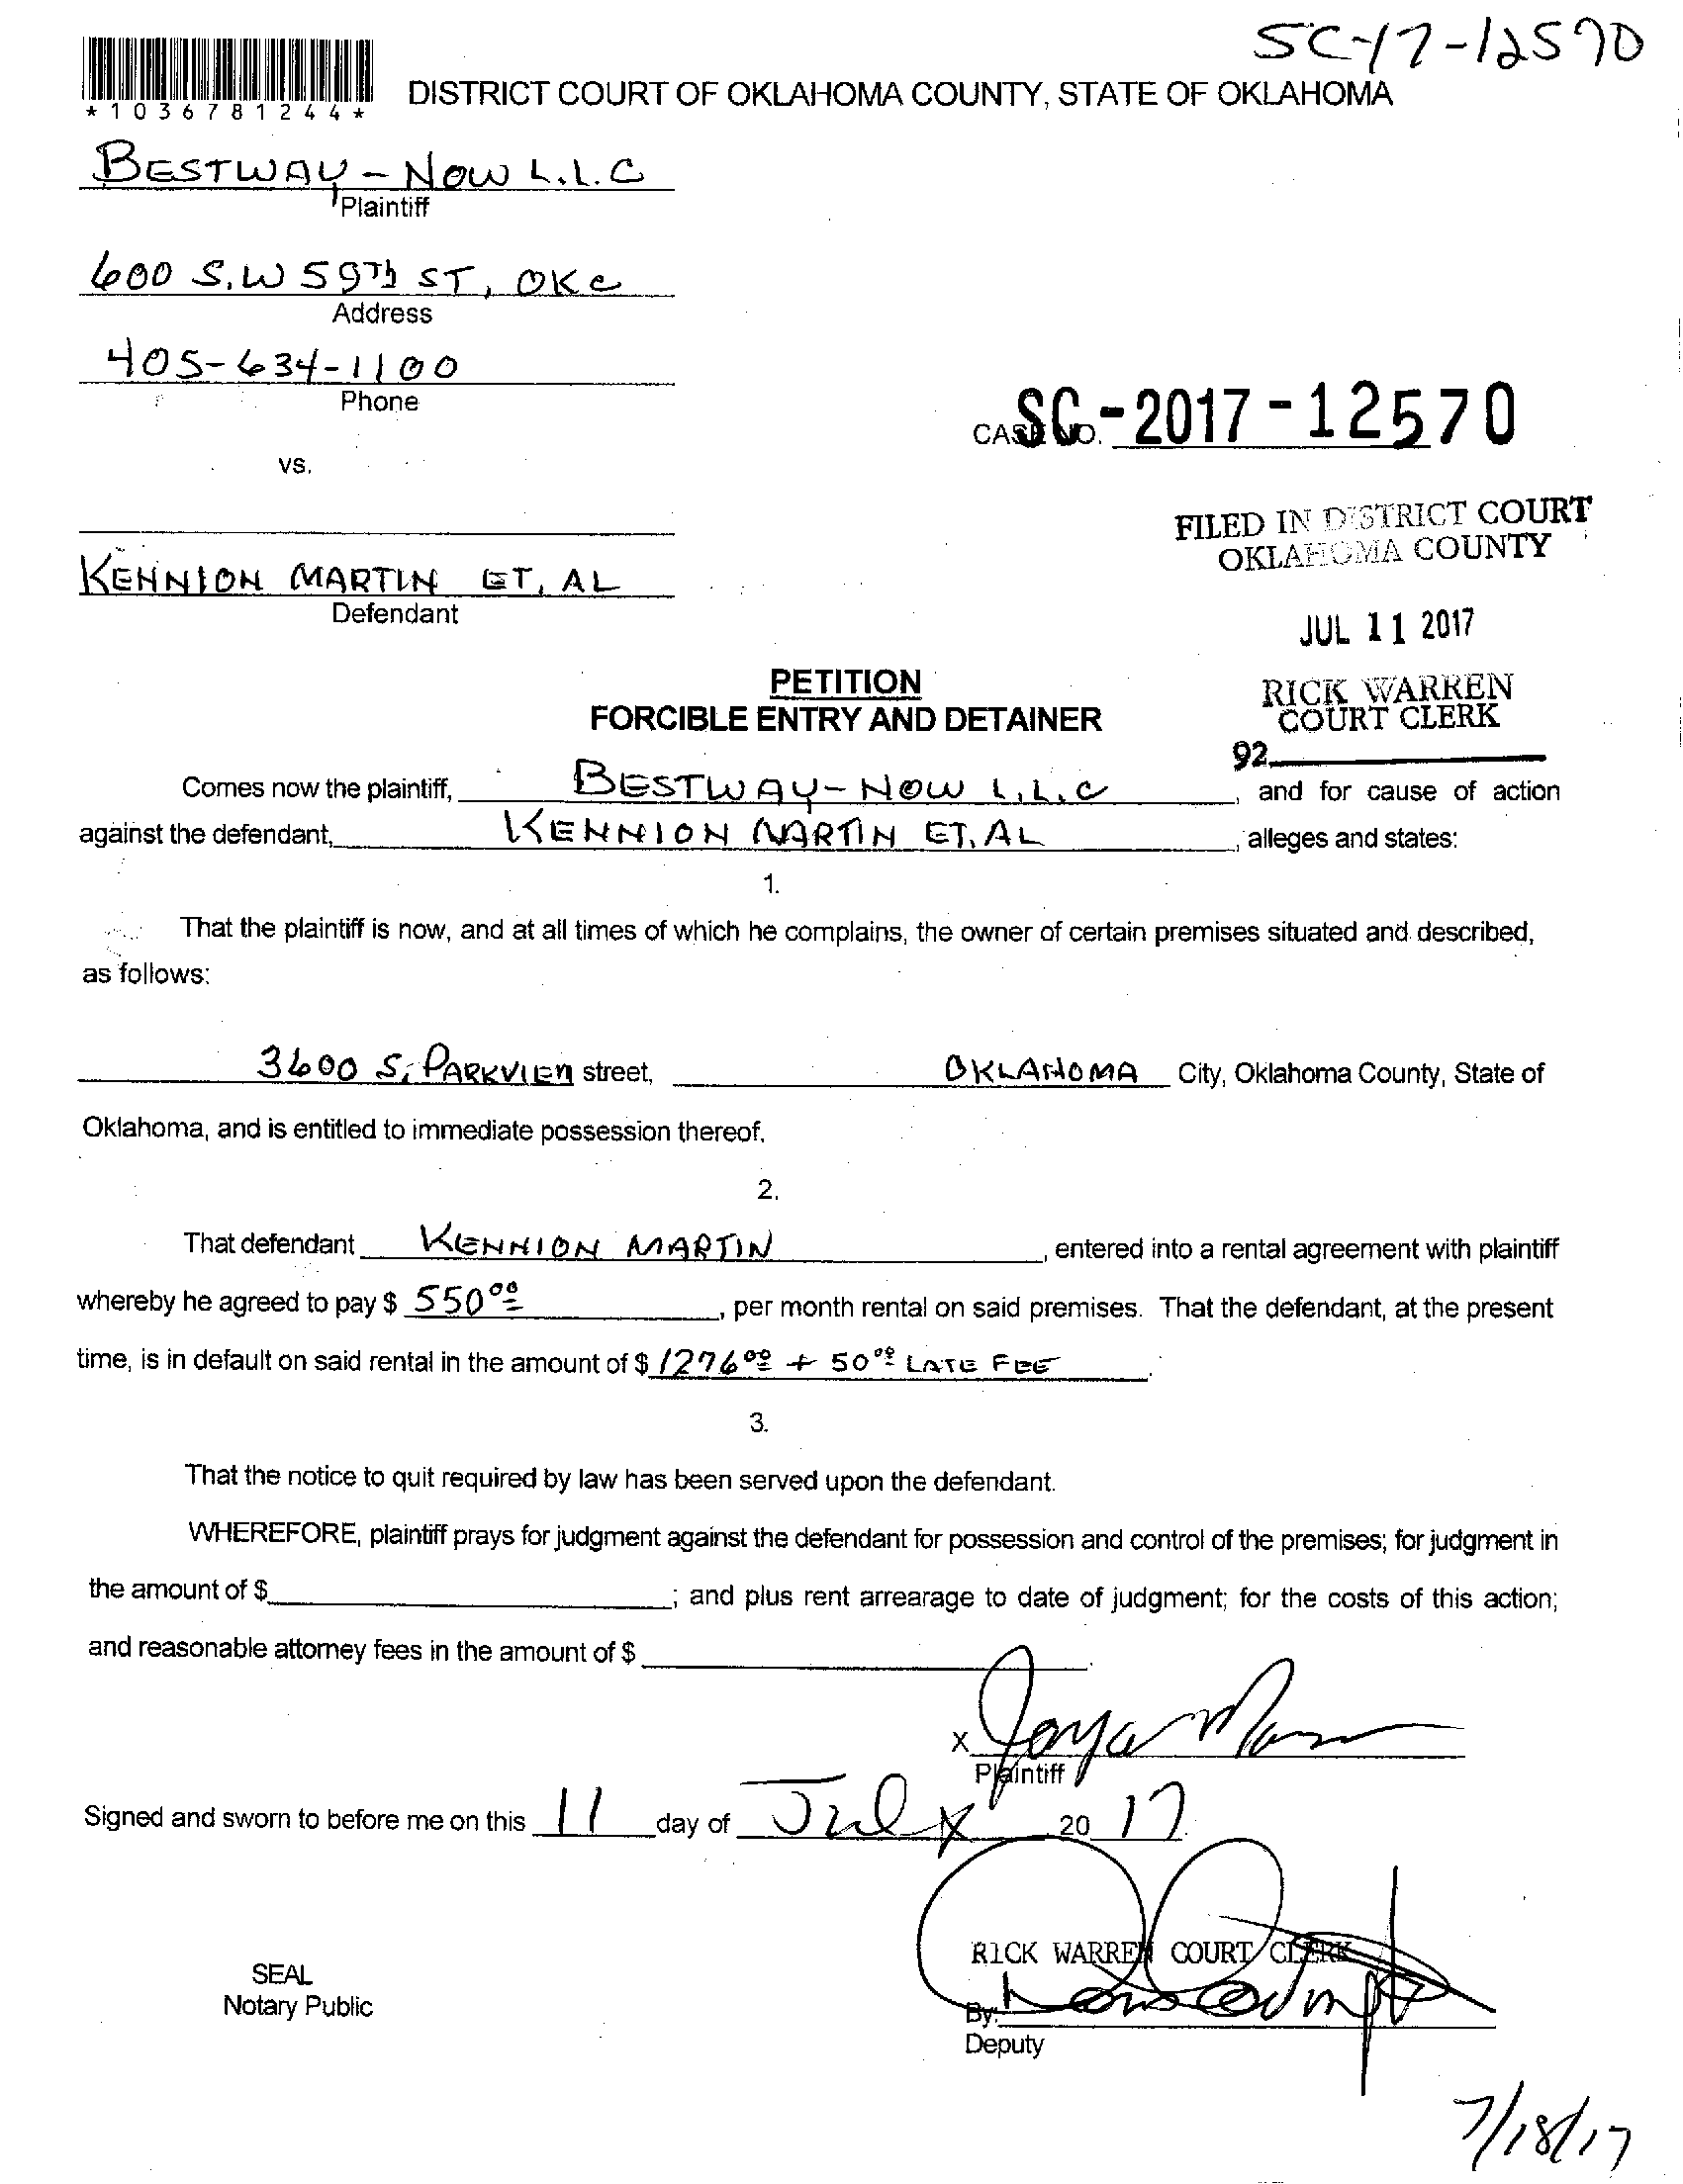 SC-17-12570
*1036781244*
DISTRICT COURT OF OKLAHOMA COUNTY, STATE OF OKLAHOMA
BESTWAY - NOW L.L.C
Plaintiff
600 S.W 59Th ST, OKC
Address
405-634-1100
Phone
CASE NO. SC-2017-12570
vs.
FILED IN DISTRICT COURT
OKLAHOMA COUNTY
KENNION MARTIN ET, AL
Defendant
JUL 11 2017
PETITION
RICK WARREN
FORCIBLE ENTRY AND DETAINER
COURT CLERK
92
Comes now the plaintiff, BESTWAY-NOW L.L.C, and for cause of action
against the defendant, KENNION MARTIN ET, AL, alleges and states:
1.
That the plaintiff is now, and at all times of which he complains, the owner of certain premises situated and described,
as follows:
3600 S. PARKVIEW street, OKLAHOMA City, Oklahoma County, State of
Oklahoma, and is entitled to immediate possession thereof.
2.
That defendant KENNION MARTIN, entered into a rental agreement with plaintiff
whereby he agreed to pay $ 550.00, per month rental on said premises. That the defendant, at the present
time, is in default on said rental in the amount of $ 1276.00 + 50.00 LATE FEE.
3.
That the notice to quit required by law has been served upon the defendant.
WHEREFORE, plaintiff prays for judgment against the defendant for possession and control of the premises; for judgment in
the amount of $ ; and plus rent arrearage to date of judgment; for the costs of this action;
and reasonable attorney fees in the amount of $ .
X
Plaintiff
Signed and sworn to before me on this 11 day of July 20 17.
RICK WARREN COURT CLERK
SEAL
Notary Public
By:
Deputy
7/18/17